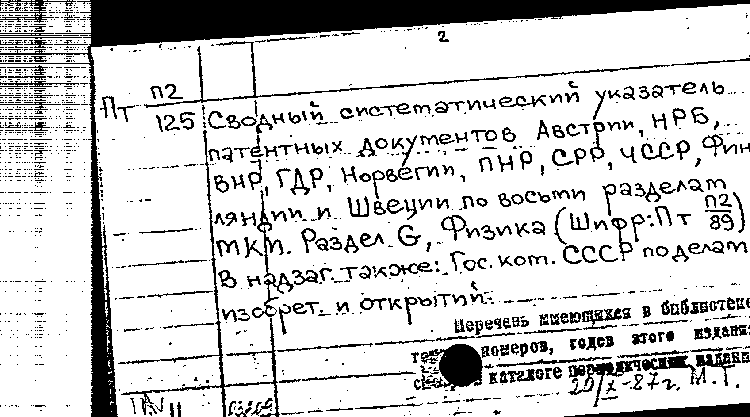 2
Пт П2/125 Сводный систематический указатель
патентных документов Австрии, НРБ,
ВНР, ГДР, Норвегии, ПНР, СРР, ЧССР, Фин
ляндии и Швеции по восьми разделам
МКИ. Раздел G, Физика (Шифр: Пт П2/89)
В надзаг. также: Гос. ком. СССР по делам
изобрет. и открытий.
Перечень имеющихся в библиотеке
номеров, годов этого издания
каталоге периодических издани
20/X-87г. М.Т.